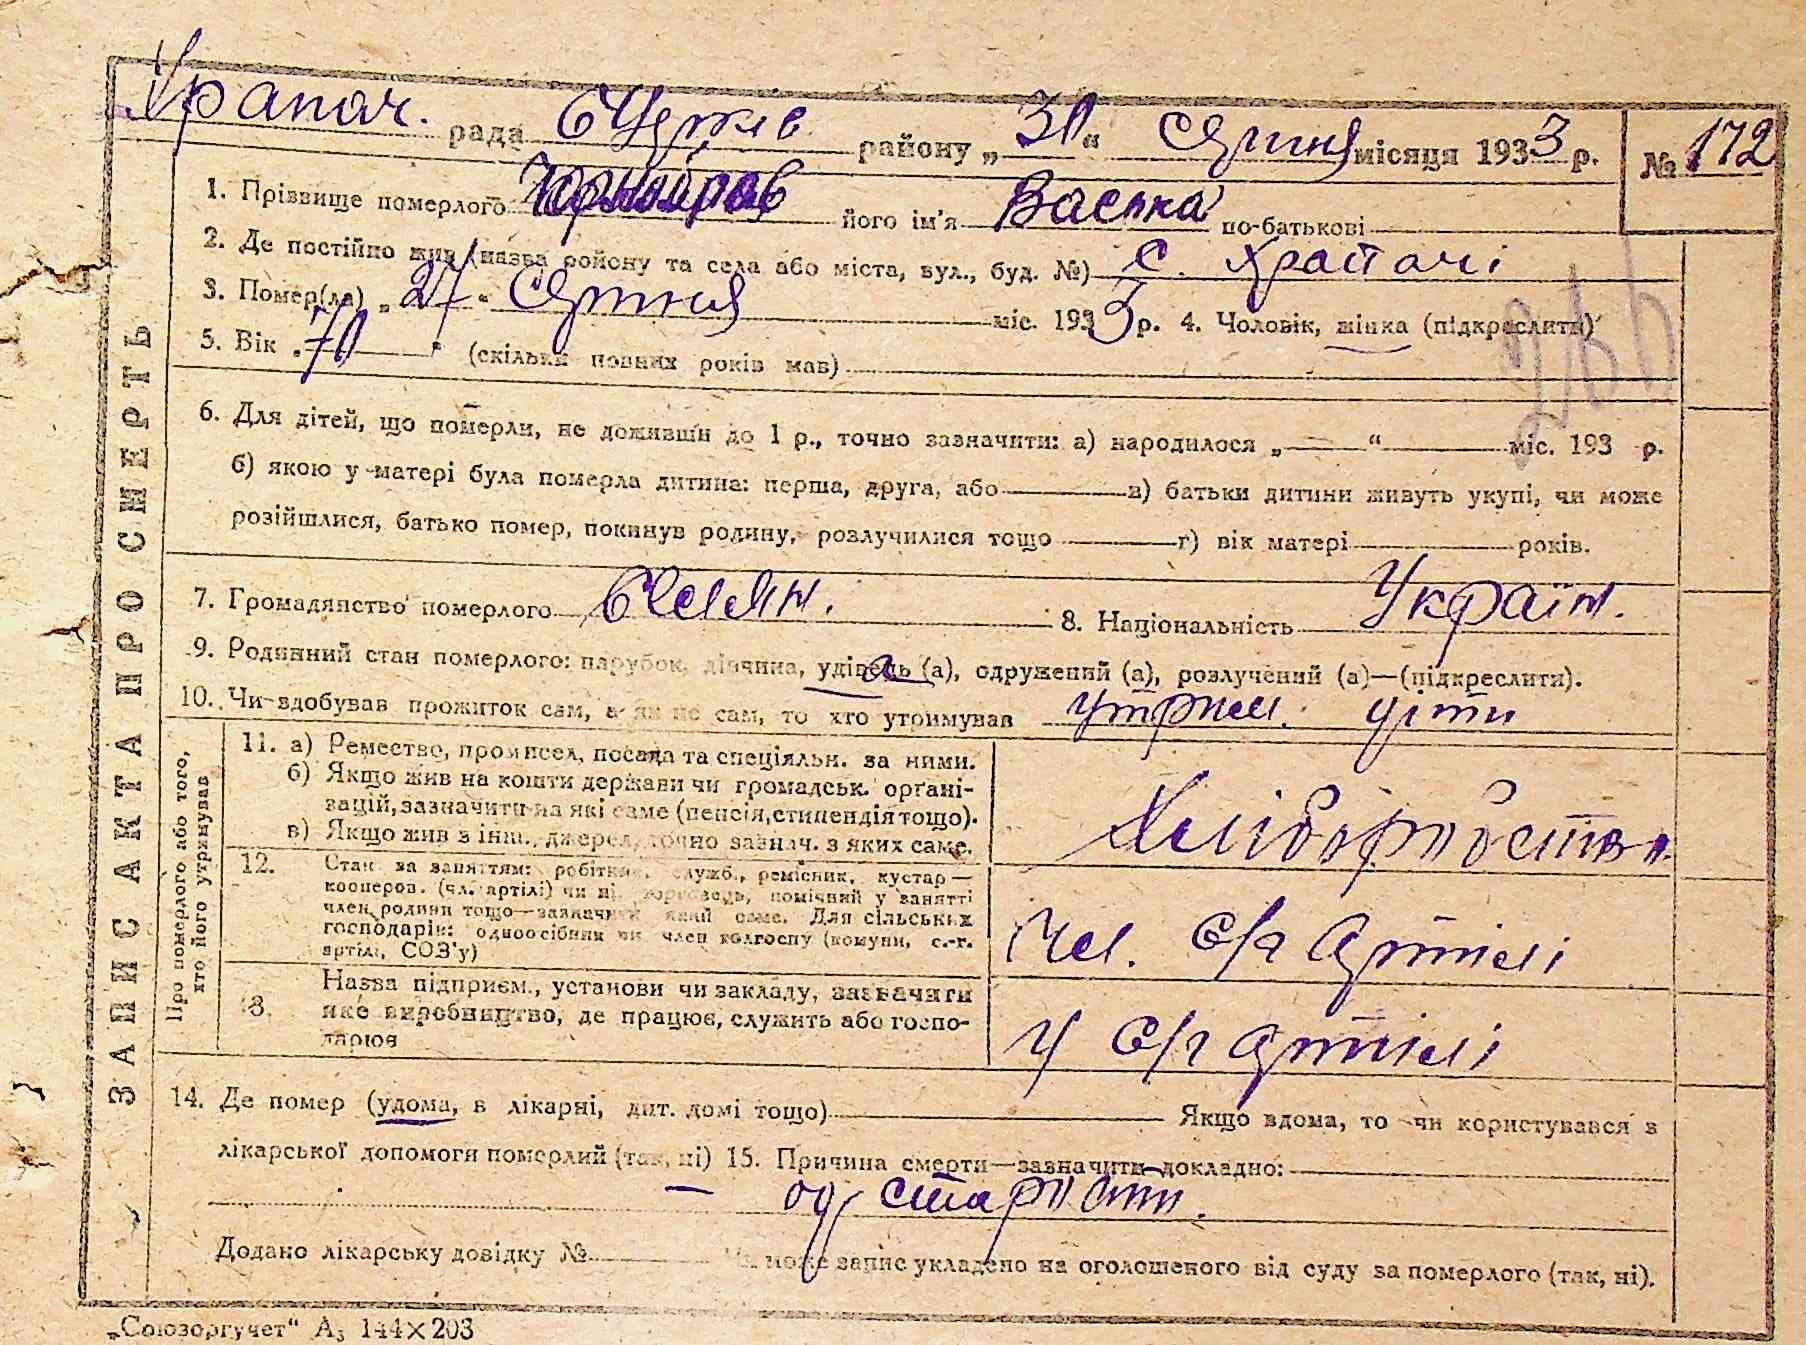 Храпач. рада бЦерків району „30“ Серпня місяця 1933 р. № 172
1. Прізвище померлого його ім'я Васька по-батькові
2. Де постійно жив (назва району та села або міста, вул., буд. №) с. Храпачі
3. Помер(ла) „27“ Серпня міс. 1933 р. 4. Чоловік, жінка (підкреслити)
5. Вік „70“ (скільки повних років мав)
6. Для дітей, що померли, не доживши до 1 р., точно зазначити: а) народилося „—“ міс. 193 р.
б) якою у матері була померла дитина: перша, друга, або в) батьки дитини живуть укупі, чи може
розійшлися, батько помер, покинув родину, розлучилися тощо г) вік матері років.
7. Громадянство померлого 8. Національність Україн.
9. Родинний стан померлого: парубок, дівчина, удівець (а), одружений (а), розлучений (а)—(підкреслити).
10. Чи здобував прожиток сам, а як не сам, то хто утримував утрим. діти
11. а) Ремество, промисел, посада та спеціяльн. за ними.
б) Якщо жив на кошти держави чи громадськ. орґані-
зацій, зазначити на які саме (пенсія, стипендія тощо).
в) Якщо жив з інш. джерел, точно зазнач. з яких саме.
Хліборобство
12. Стан за заняттям: робітник, служб., ремісник, кустар—
кооперов. (чл. артілі) чи ні, торговець, помічний у занятті
член родини тощо—зазначити який саме. Для сільських
господарів: одноосібник чи член колгоспу (комуни, с.-г.
артілі, СОЗ'у)
Чл. С/г Артілі
13. Назва підприєм., установи чи закладу, зазначити
яке виробництво, де працює, служить або госпо-
дарює
У С/г артілі
14. Де помер (удома, в лікарні, дит. домі тощо) Якщо вдома, то чи користувався з
лікарської допомоги померлий (так, ні) 15. Причина смерти—зазначити докладно:
— од старости.
Додано лікарську довідку № Чи може запис укладено на оголошеного від суду за померлого (так, ні).
ЗАПИС АКТА ПРО СМЕРТЬ
Про померлого або того,
хто його утримував
„Союзоргучет“ А₅ 144×203